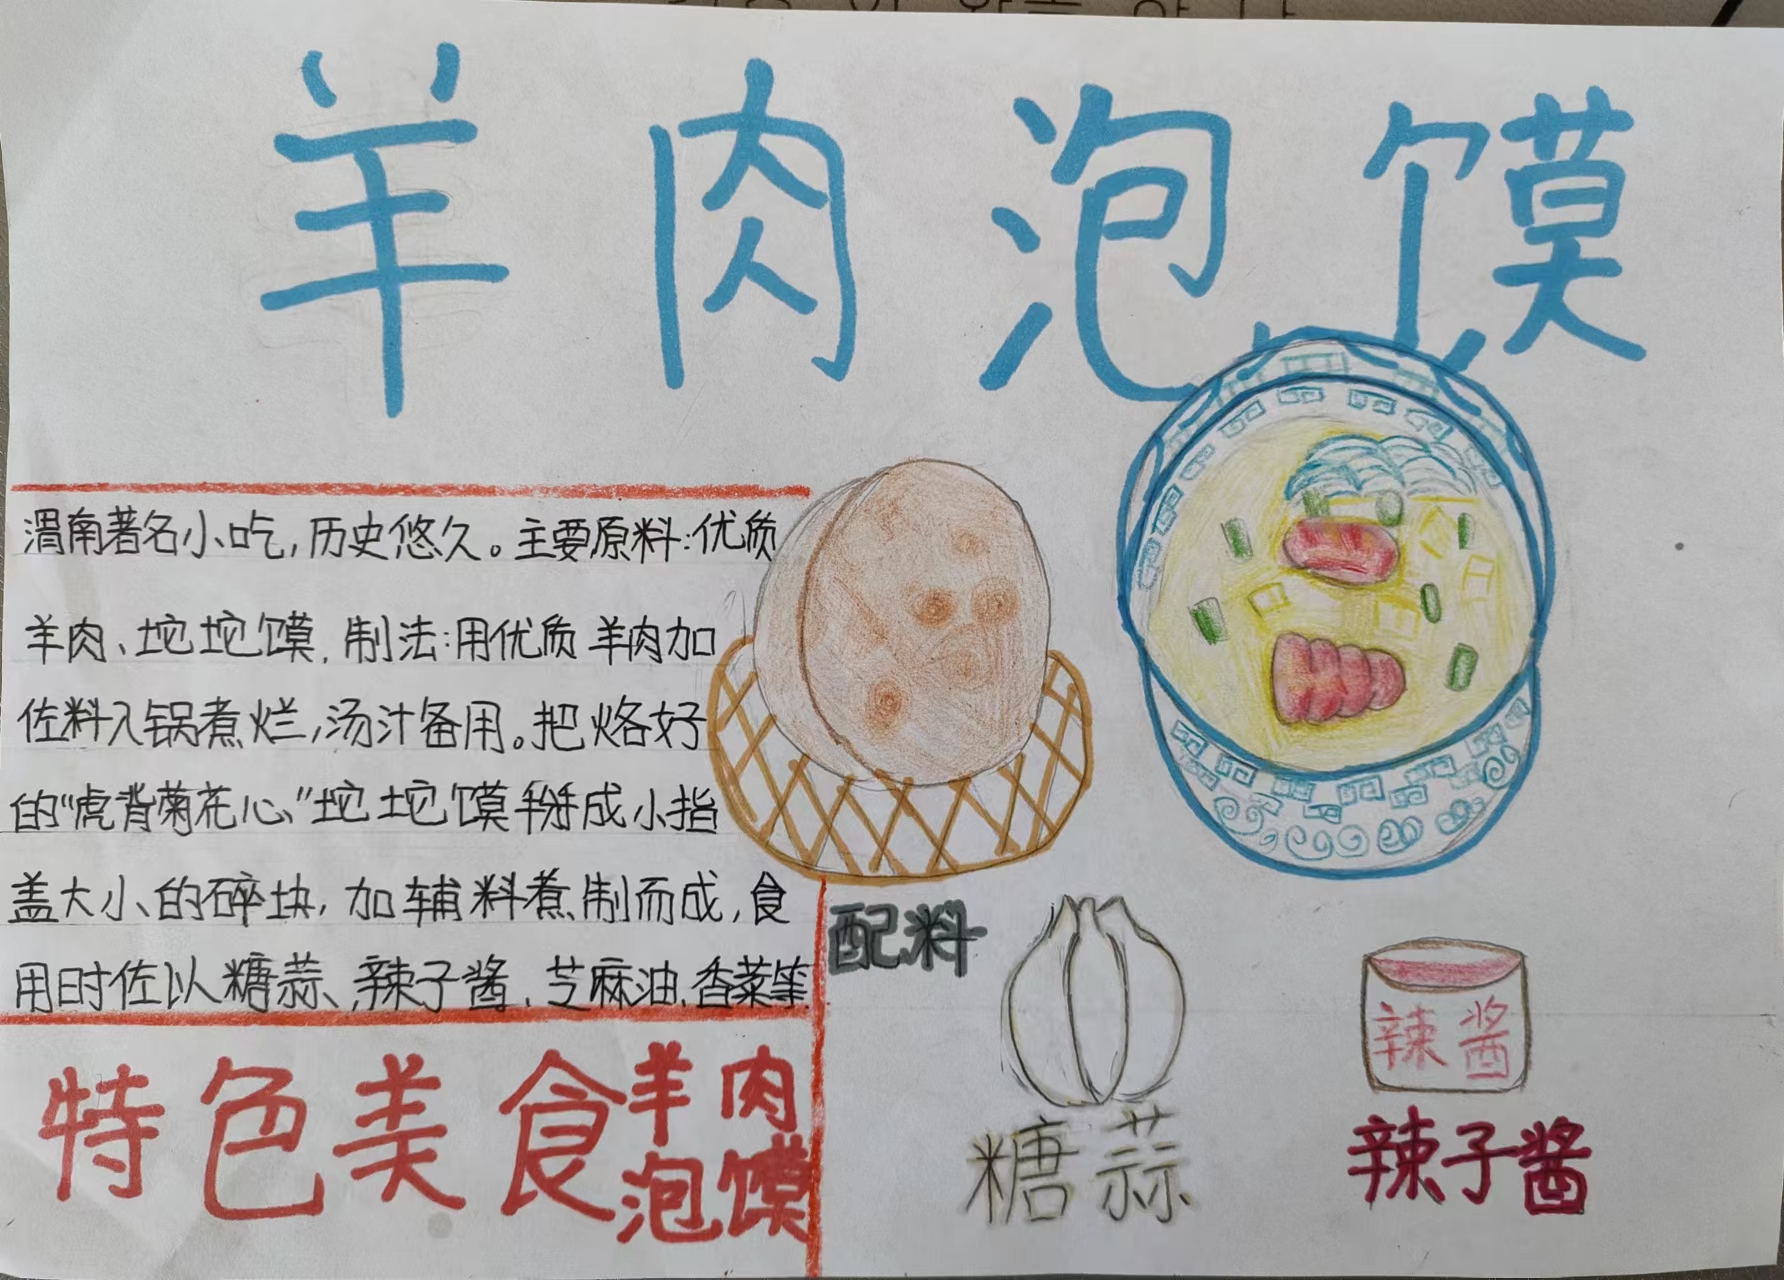 羊肉泡馍
渭南著名小吃，历史悠久。主要原料：优质
羊肉、坨坨馍，制法：用优质羊肉加
佐料入锅煮烂，汤汁备用。把烙好
的“虎背菊花心”坨坨馍掰成小指
盖大小的碎块，加辅料煮制而成，食
用时佐以糖蒜、辣子酱、芝麻油、香菜等
特色美食羊肉
泡馍
配料
辣酱
糖蒜
辣子酱